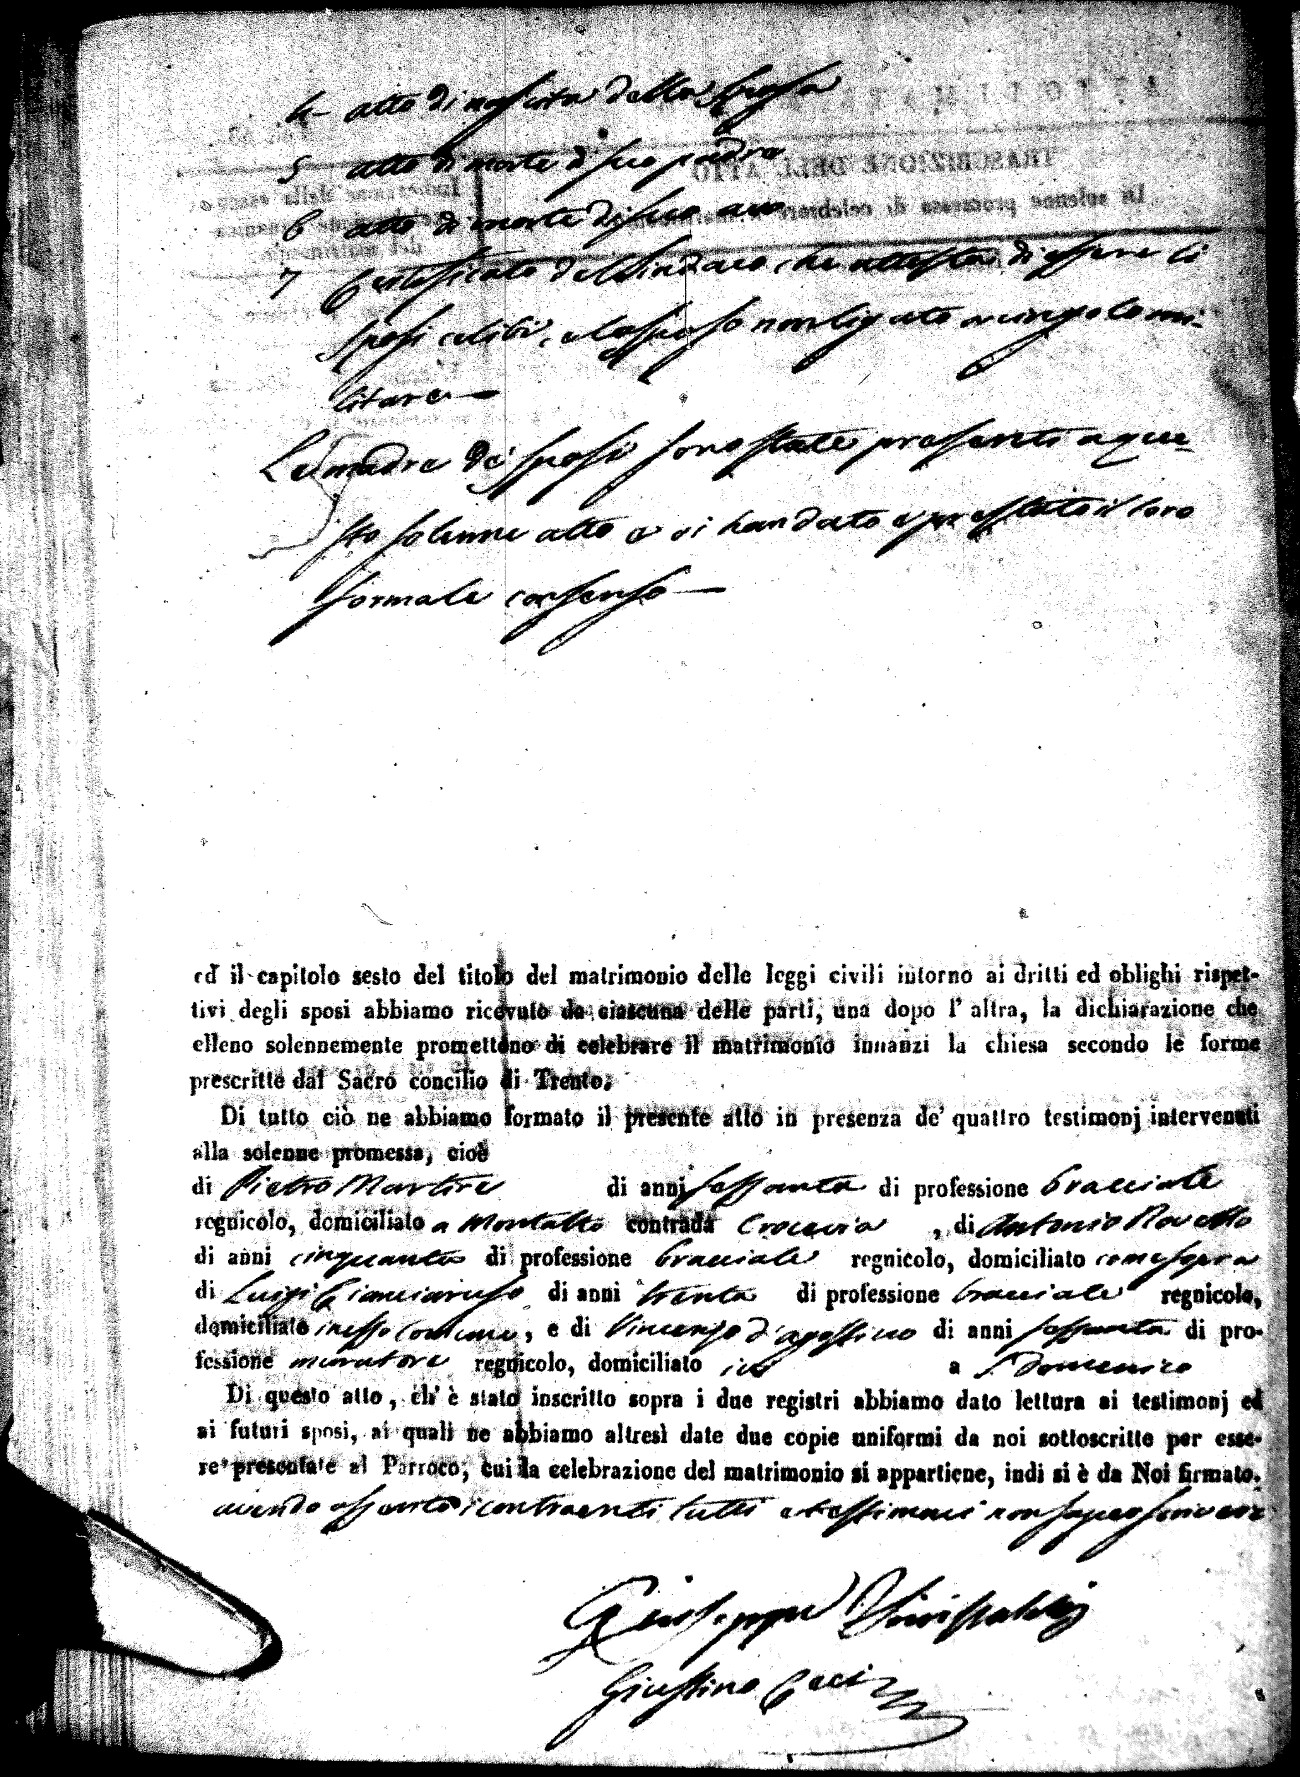 4 atto di nascita della sposa
5 atto di morte di suo padre
6 atto di morte di suo avo
7 Certificato del Sindaco che attesta di essere li
sposi celibi, e lo sposo non ligato a cingolo mi-
litare —
Le madre de' sposi sono state presenti a que-
sto solenne atto e vi han dato e prestato il loro
formale consenso —
ed il capitolo sesto del titolo del matrimonio delle leggi civili intorno ai dritti ed oblighi rispet-
tivi degli sposi abbiamo ricevuto da ciascuna delle parti, una dopo l' altra, la dichiarazione che
elleno solennemente promettono di celebrare il matrimonio innanzi la chiesa secondo le forme
prescritte dal Sacro concilio di Trento.
Di tutto ciò ne abbiamo formato il presente atto in presenza de' quattro testimonj intervenuti
alla solenne promessa, cioè
di Pietro Martire di anni sessanta di professione bracciale
regnicolo, domiciliato a Montalto contrada Crocevia , di Antonio Rovetto
di anni cinquanta di professione bracciale regnicolo, domiciliato come sopra
di Luigi Cianciaruso di anni trenta di professione bracciale regnicolo,
domiciliato in esso comune, e di Vincenzo d'agostino di anni sessanta di pro-
fessione muratore regnicolo, domiciliato ivi a S. Domenico
Di questo atto, ch' è stato inscritto sopra i due registri abbiamo dato lettura ai testimonj ed
ai futuri sposi, ai quali ne abbiamo altresì date due copie uniformi da noi sottoscritte per esse-
re presentate al Parroco, cui la celebrazione del matrimonio si appartiene, indi si è da Noi firmato,
avendo asserito i contraenti tutti e testimoni non saper scrivere
Giuseppe
Giustino Ceci